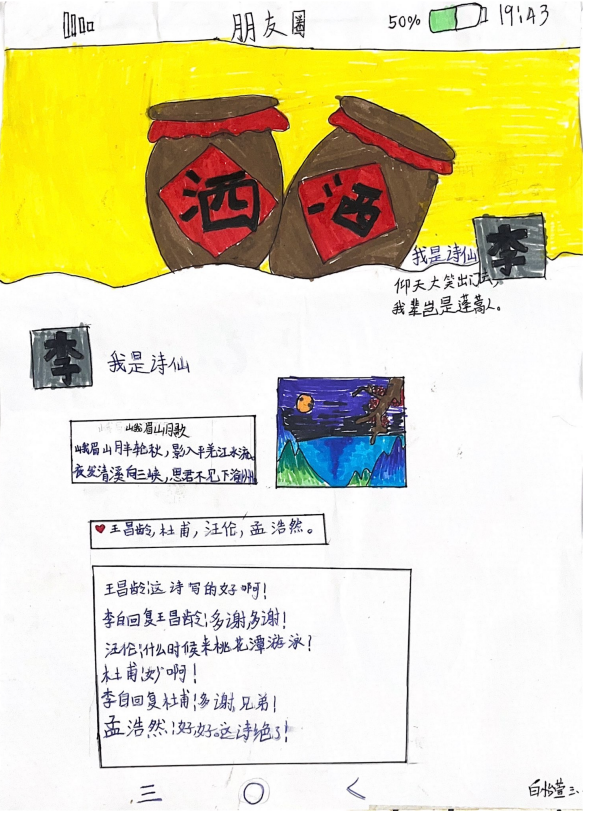 朋友圈 50% 19:43
酒 酒
我是诗仙 李
仰天大笑出门去,
我辈岂是蓬蒿人。
李 我是诗仙
峨眉山月歌
峨眉山月半轮秋,影入平羌江水流。
夜发清溪向三峡,思君不见下渝州。
王昌龄,杜甫,汪伦,孟浩然。
王昌龄:这诗写的好啊!
李白回复王昌龄:多谢,多谢!
汪伦:什么时候来桃花潭游泳?
杜甫:妙啊!
李白回复杜甫:多谢,兄弟!
孟浩然:好,好。这诗绝了!
白怡萱 三、